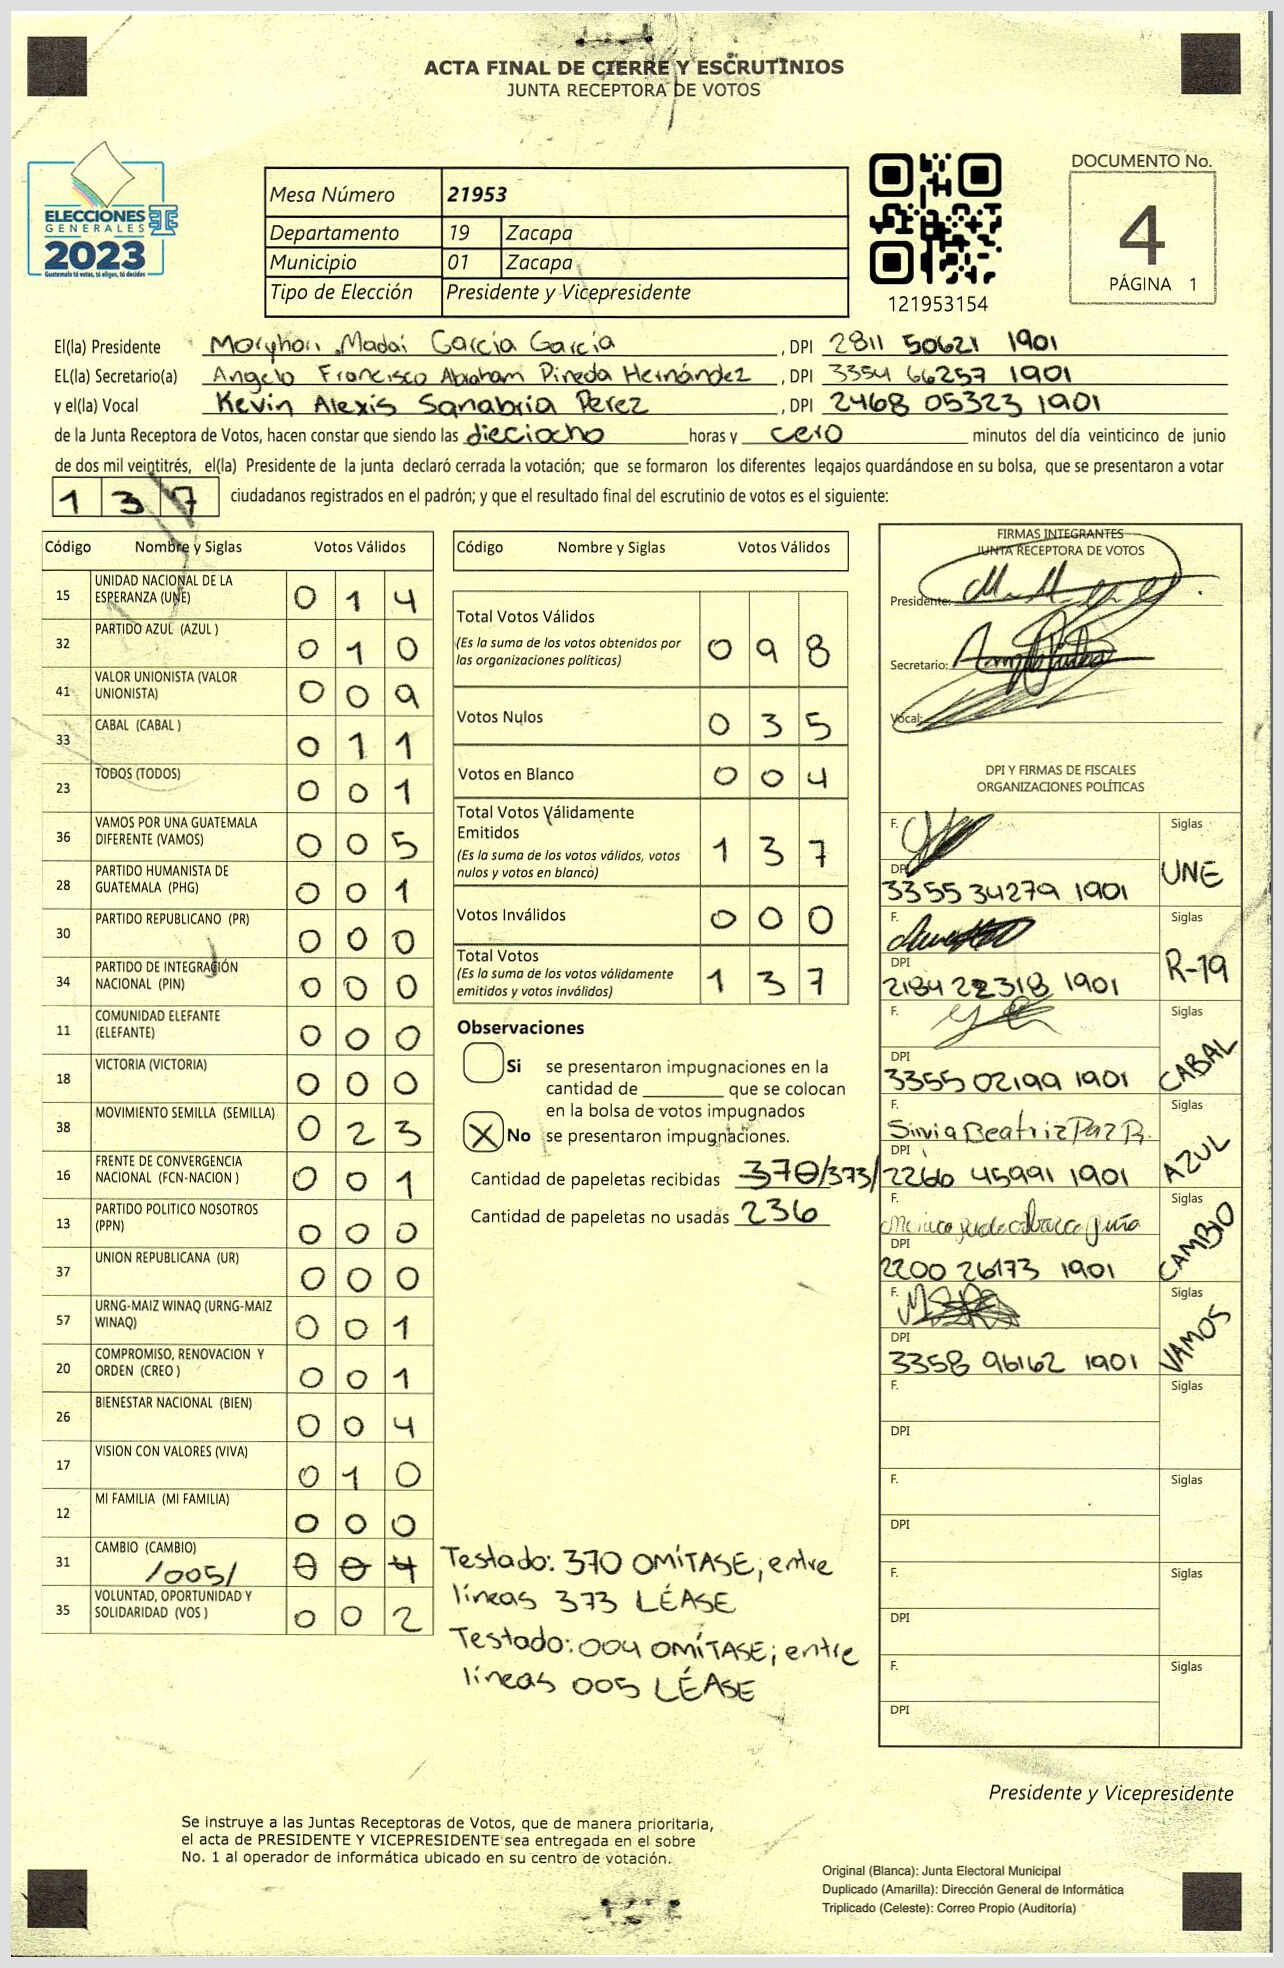 ACTA FINAL DE CIERRE Y ESCRUTINIOS
JUNTA RECEPTORA DE VOTOS
ELECCIONES
GENERALES
2023
Guatemala tú votas, tú eliges, tú decides
Mesa Número 21953
Departamento 19 Zacapa
Municipio 01 Zacapa
Tipo de Elección Presidente y Vicepresidente
121953154
DOCUMENTO No.
4
PÁGINA 1
El(la) Presidente Madai García García , DPI 2811 50621 1901
EL(la) Secretario(a) Angelo Francisco Abraham Pineda Hernández , DPI 3354 66257 1901
y el(la) Vocal Kevin Alexis Sanabria Perez , DPI 2468 05323 1901
de la Junta Receptora de Votos, hacen constar que siendo las dieciocho horas y cero minutos del día veinticinco de junio
de dos mil veintitrés, el(la) Presidente de la junta declaró cerrada la votación; que se formaron los diferentes legajos quardándose en su bolsa, que se presentaron a votar
1 3 7 ciudadanos registrados en el padrón; y que el resultado final del escrutinio de votos es el siguiente:
Código Nombre y Siglas Votos Válidos
15 UNIDAD NACIONAL DE LA ESPERANZA (UNE) 0 1 4
32 PARTIDO AZUL (AZUL ) 0 1 0
41 VALOR UNIONISTA (VALOR UNIONISTA) 0 0 9
33 CABAL (CABAL ) 0 1 1
23 TODOS (TODOS) 0 0 1
36 VAMOS POR UNA GUATEMALA DIFERENTE (VAMOS) 0 0 5
28 PARTIDO HUMANISTA DE GUATEMALA (PHG) 0 0 1
30 PARTIDO REPUBLICANO (PR) 0 0 0
34 PARTIDO DE INTEGRACIÓN NACIONAL (PIN) 0 0 0
11 COMUNIDAD ELEFANTE (ELEFANTE) 0 0 0
18 VICTORIA (VICTORIA) 0 0 0
38 MOVIMIENTO SEMILLA (SEMILLA) 0 2 3
16 FRENTE DE CONVERGENCIA NACIONAL (FCN-NACION ) 0 0 1
13 PARTIDO POLITICO NOSOTROS (PPN) 0 0 0
37 UNION REPUBLICANA (UR) 0 0 0
57 URNG-MAIZ WINAQ (URNG-MAIZ WINAQ) 0 0 1
20 COMPROMISO, RENOVACION Y ORDEN (CREO ) 0 0 1
26 BIENESTAR NACIONAL (BIEN) 0 0 4
17 VISION CON VALORES (VIVA) 0 1 0
12 MI FAMILIA (MI FAMILIA) 0 0 0
31 CAMBIO (CAMBIO) /005/ 0 0 4
35 VOLUNTAD, OPORTUNIDAD Y SOLIDARIDAD (VOS ) 0 0 2
Código Nombre y Siglas Votos Válidos
Total Votos Válidos 0 9 8
(Es la suma de los votos obtenidos por
las organizaciones políticas)
Votos Nulos 0 3 5
Votos en Blanco 0 0 4
Total Votos Válidamente
Emitidos 1 3 7
(Es la suma de los votos válidos, votos
nulos y votos en blanco)
Votos Inválidos 0 0 0
Total Votos 1 3 7
(Es la suma de los votos válidamente
emitidos y votos inválidos)
Observaciones
Si se presentaron impugnaciones en la
cantidad de ________ que se colocan
en la bolsa de votos impugnados
X No se presentaron impugnaciones.
Cantidad de papeletas recibidas 370/373/
Cantidad de papeletas no usadas 236
Testado: 370 OMÍTASE; entre
líneas 373 LÉASE
Testado: 004 OMÍTASE; entre
líneas 005 LÉASE
FIRMAS INTEGRANTES
JUNTA RECEPTORA DE VOTOS
Presidente:
Secretario:
Vocal:
DPI Y FIRMAS DE FISCALES
ORGANIZACIONES POLÍTICAS
F. Siglas
DPI UNE
3355 34279 1901
F. Siglas
DPI R-19
2184 22318 1901
F. Siglas
DPI CABAL
3355 02199 1901
F. Siglas
Silvia Beatriz Paz R.
DPI AZUL
2266 45991 1901
F. Siglas
DPI CAMBIO
2200 26173 1901
F. Siglas
DPI VAMOS
3358 96162 1901
F. Siglas
DPI
F. Siglas
DPI
F. Siglas
DPI
F. Siglas
DPI
Presidente y Vicepresidente
Se instruye a las Juntas Receptoras de Votos, que de manera prioritaria,
el acta de PRESIDENTE Y VICEPRESIDENTE sea entregada en el sobre
No. 1 al operador de informática ubicado en su centro de votación.
Original (Blanca): Junta Electoral Municipal
Duplicado (Amarilla): Dirección General de Informática
Triplicado (Celeste): Correo Propio (Auditoría)